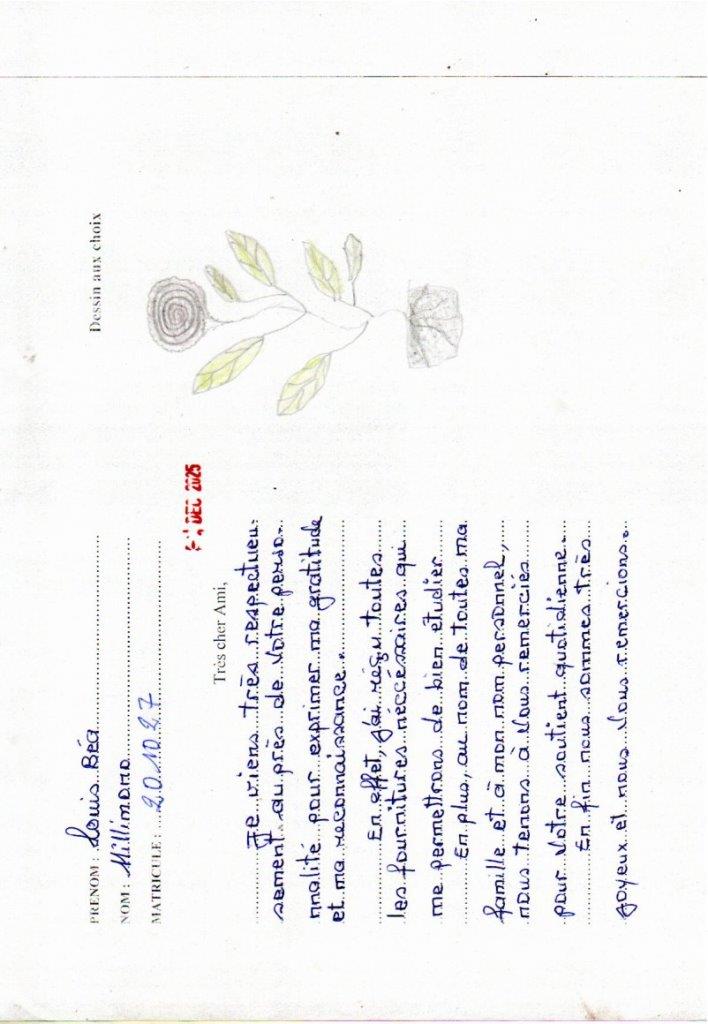 PRENOM : Louis Béa
NOM : Millimono
MATRICULE : 201027
DEC 2025
Dessin aux choix
Très cher Ami,
Je viens très respectueu-
sement au près de votre perso-
nnalité pour exprimer ma gratitude
et ma reconnaissance.
En effet, j'ai réçu toutes
les fournitures néccéssaires qui
me permettrons de bien etudier
En plus, au nom de toutes ma
famille et à mon nom personnel,
nous tenons à vous remerciés
pour votre soutient quotidienne.
En fin nous sommes très
joyeux et nous vous remercions.